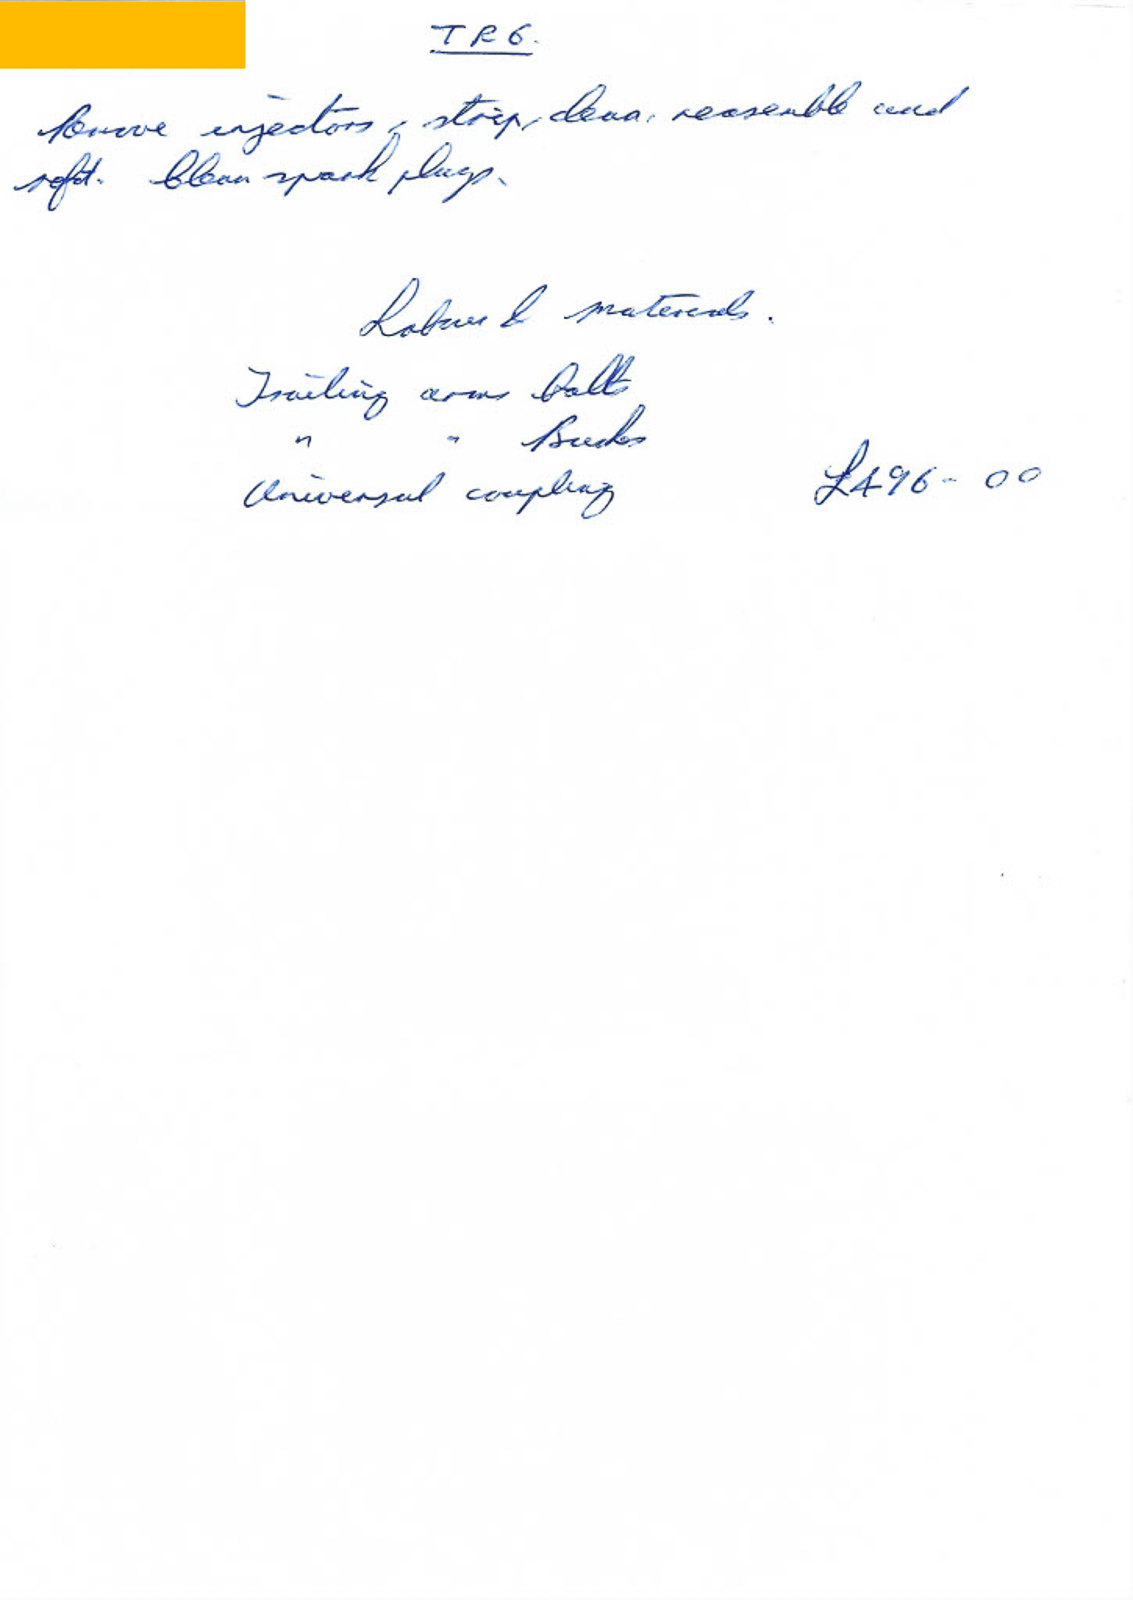 TR6.
Remove injectors, strip, clean, reasemble and
refit. Clean spark plugs.
Labour & materials.
Trailing arms bolts
" " Bushes
Universal coupling £496-00